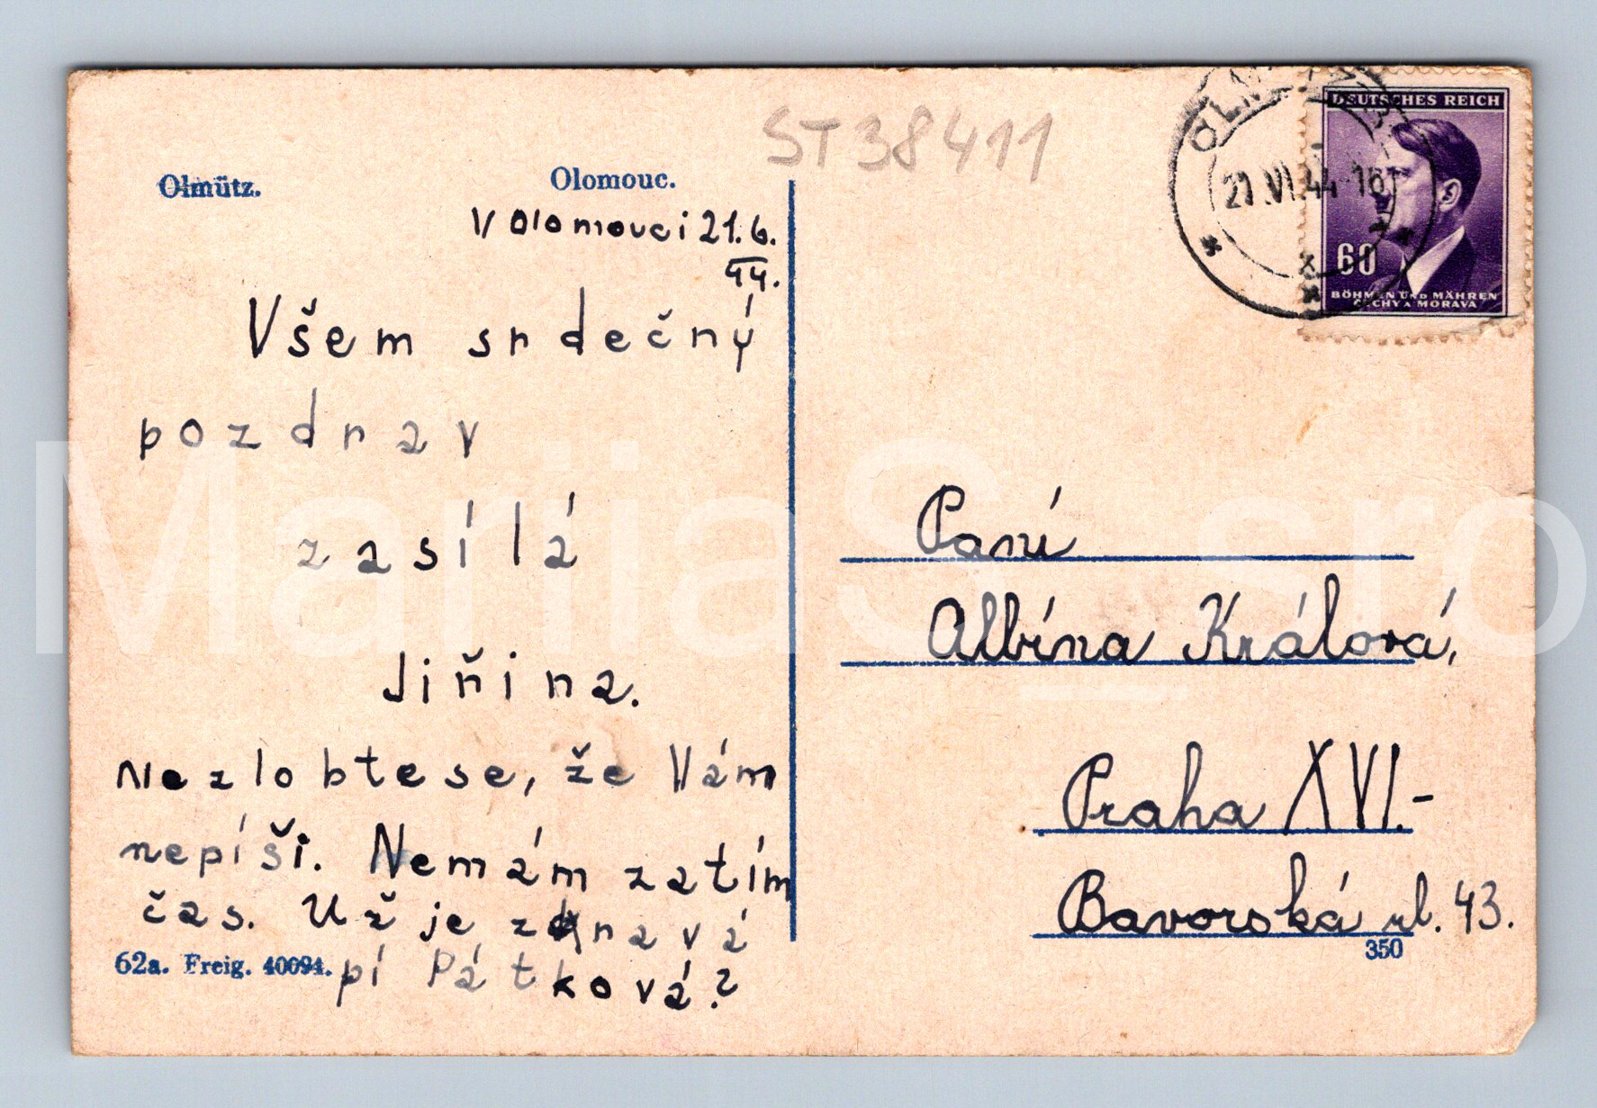 ST38411
Olmütz.
Olomouc.
V Olomouci 21.6.
44.
Všem srdečný
pozdrav
zasílá
Jiřina.
Nezlobte se, že Vám
nepíši. Nemám zatím
čas. Už je zdravá
pí Pátková?
62a. Freig. 40094.
OLMÜTZ
21.VI.44-16
DEUTSCHES REICH
60
BÖHMEN UND MÄHREN
ČECHY A MORAVA
Paní
Albína Králová,
Praha XVI.-
Bavorská ul. 43.
350
MariiaS_sro